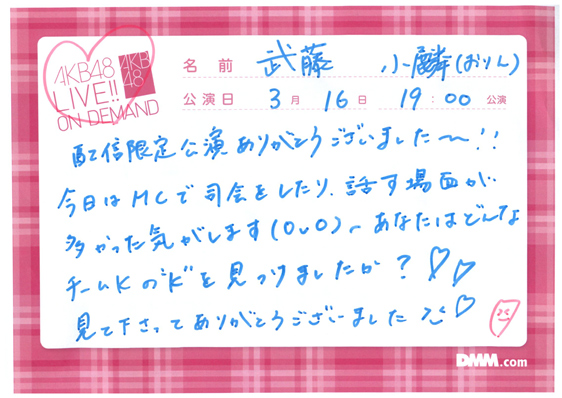 AKB48
LIVE!!
ON DEMAND
AKB
48
名前 武藤 小麟(おりん)
公演日 3月 16日 19:00 公演
配信限定公演ありがとうございました〜!!
今日はMCで司会をしたり、話す場面が
多かった気がします(0u0)〜あなたはどんな
チームKの"K"を見つけましたか?♡♡
見て下さってありがとうございました♡
DMM.com